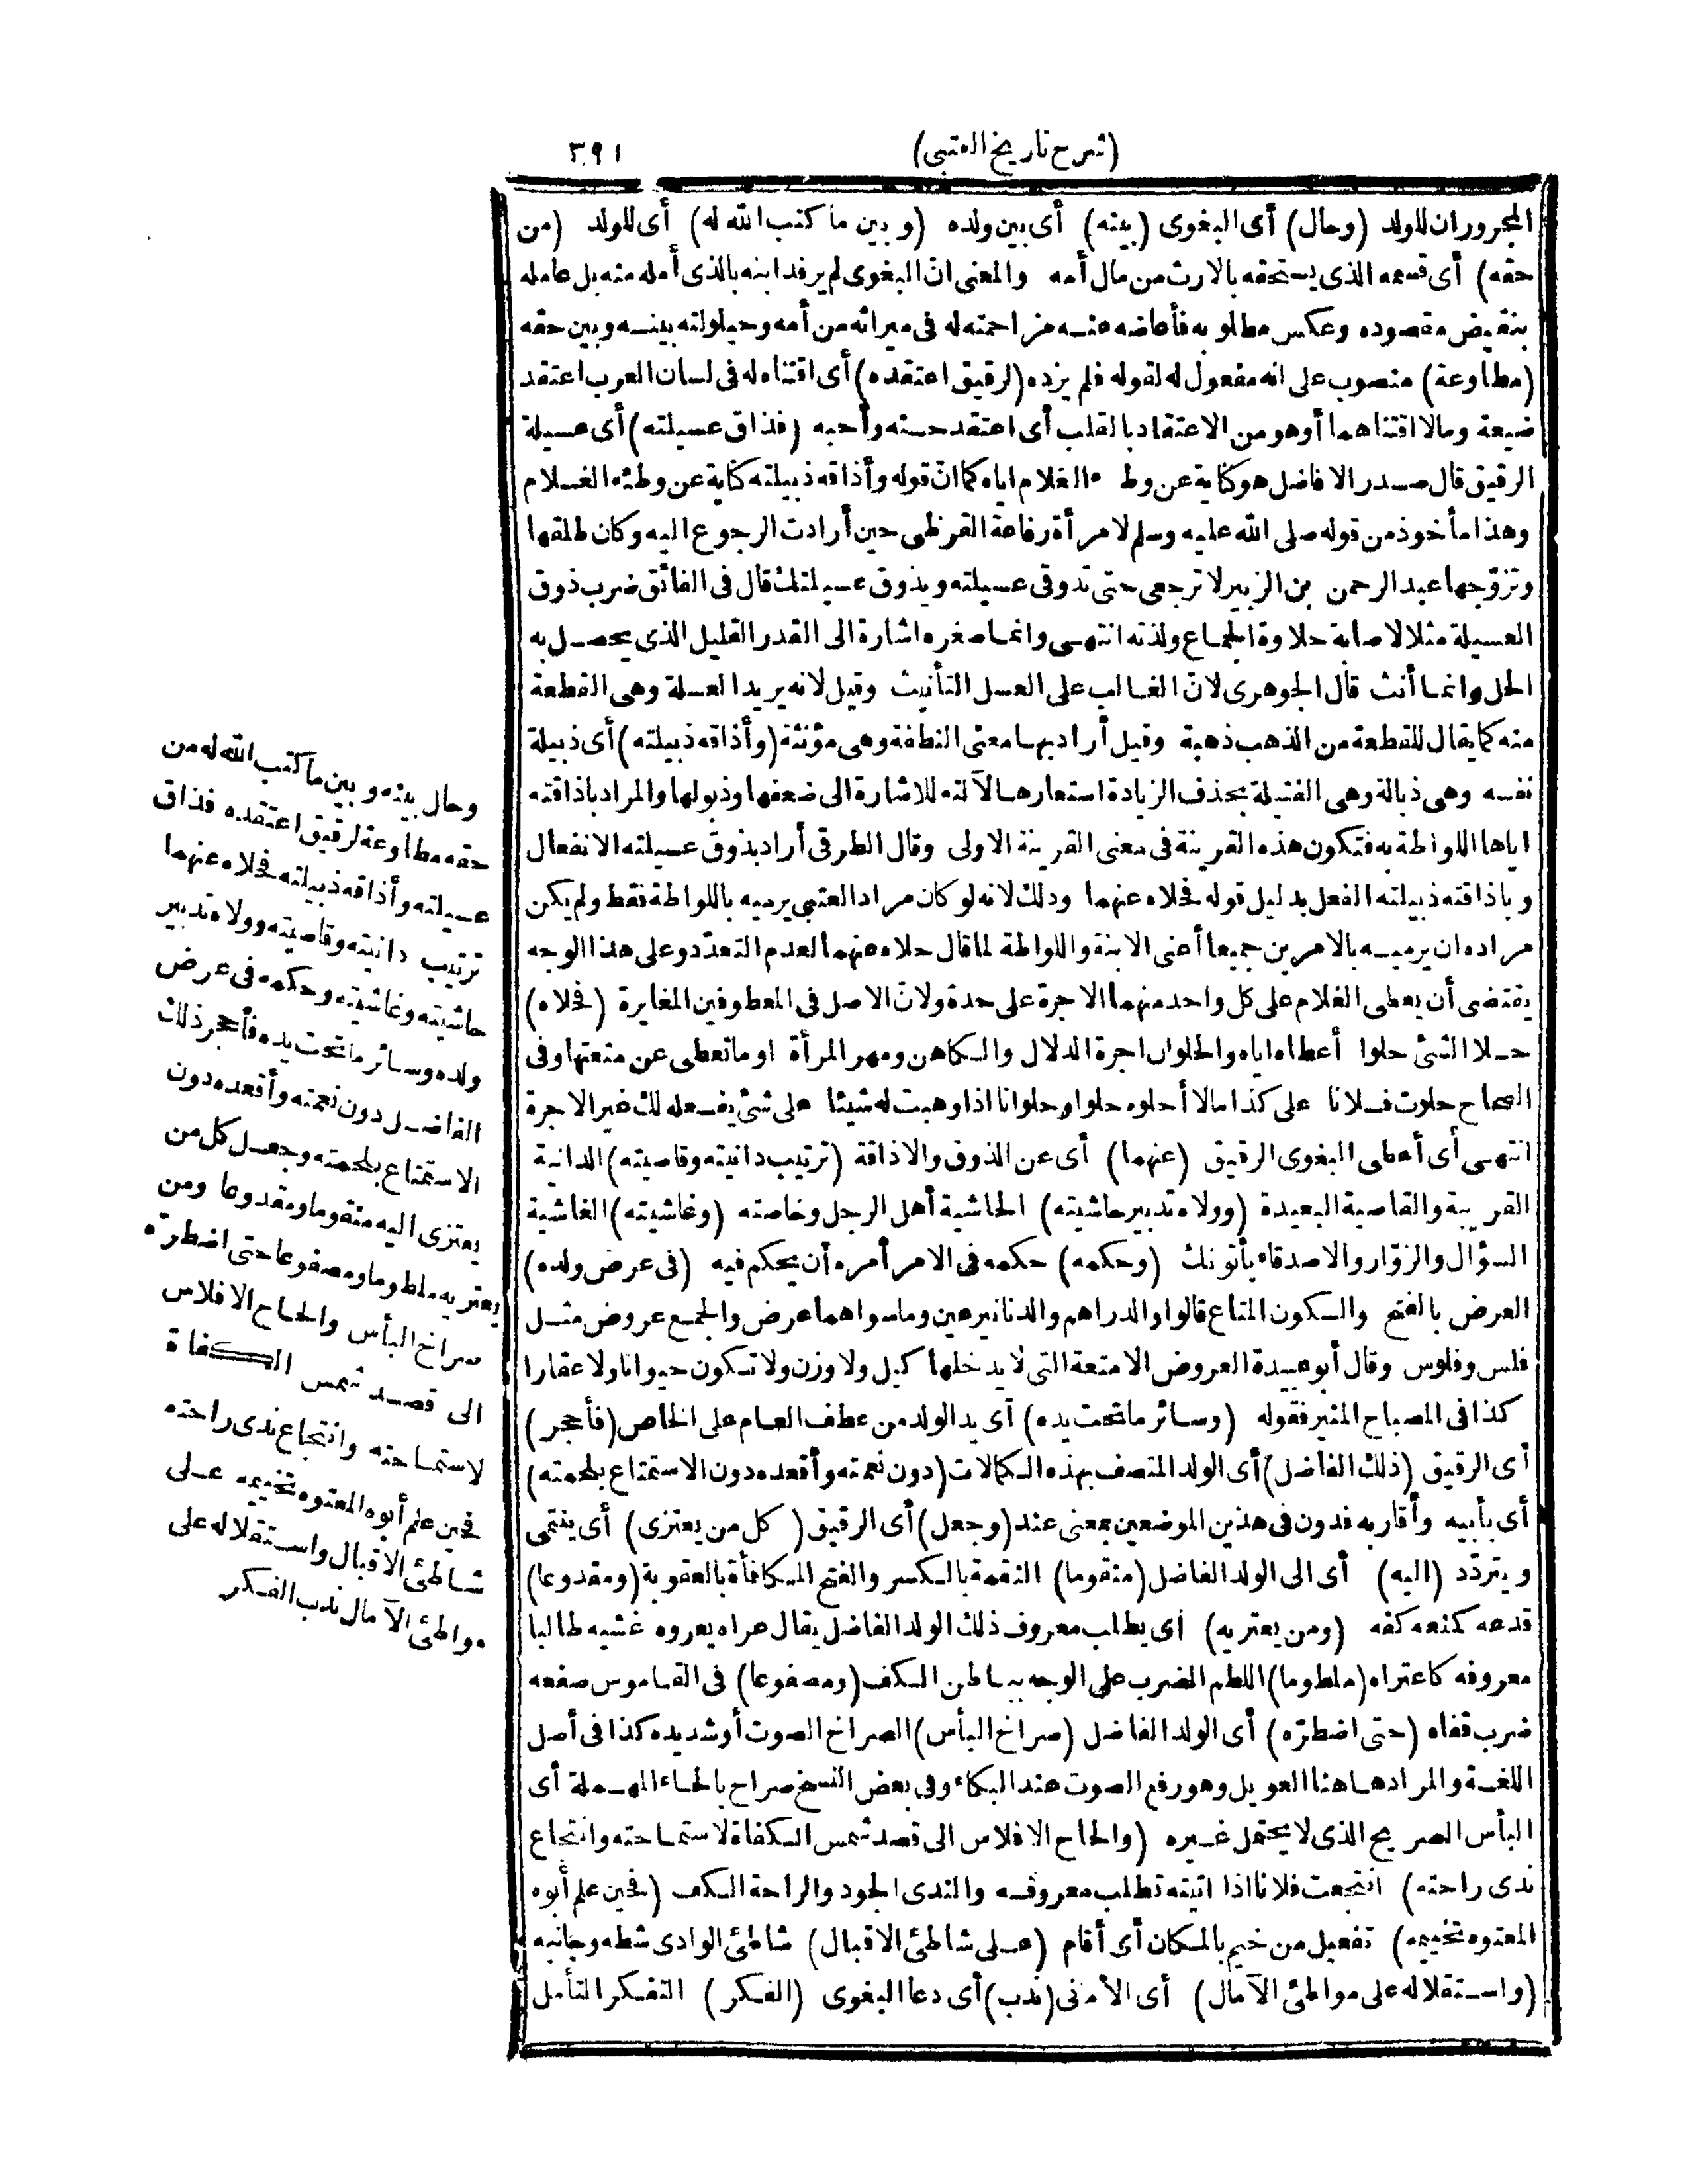 (شرح تاريخ العتبى) ٣٩١
المجروران للولد (وحال) أى البغوى (بينه) أى بين ولده (وبين ما كتب الله له) أى للولد (من
حقه) أى قسمه الذى يستحقه بالارث من مال أمه والمعنى انّ البغوى لم يرفد ابنه بالذى أمله منه بل عامله
بنقيض مقصوده وعكس مطلوبه فأعاضه عنه مزاحمته له فى ميراثه من أمه وحيلولته بينه وبين حقه
(مطاوعة) منصوب على انه مفعول له لقوله فلم يزده (لرقيق اعتقده) أى اقتناه له فى لسان العرب اعتقد
ضيعة ومالا اقتناهما أوهو من الاعتقاد بالقلب أى اعتقد حسنه وأحبه (فذاق عسيلته) أى عسيلة
الرقيق قال صدر الافاضل هو كناية عن وطء الغلام اياه كما انّ قوله وأذاقه ذبيلته كناية عن وطئه الغلام
وهذا مأخوذ من قوله صلى الله عليه وسلم لامرأة رفاعة القرظى حين أرادت الرجوع اليه وكان طلقها
وتزوّجها عبد الرحمن بن الزبير لا ترجعى حتى تذوقى عسيلته ويذوق عسيلتك قال فى الفائق ضرب ذوق
العسيلة مثلا لاصابة حلاوة الجماع ولذته انتهى وانما صغره اشارة الى القدر القليل الذى يحصل به
الحل وانما أنث قال الجوهرى لانّ الغالب على العسل التأنيث وقيل لانه يريد العسلة وهى القطعة
منه كما يقال للقطعة من الذهب ذهبة وقيل أراد بها معنى النطفة وهى مؤنثة (وأذاقه ذبيلته) أى ذبيلة
نفسه وهى ذبالة وهى الفتيلة بحذف الزيادة استعارها لآلته للاشارة الى ضعفها وذبولها والمراد باذاقته
اياها اللواطة به فتكون هذه القرينة فى معنى القرينة الاولى وقال الطرقى أراد بذوق عسيلته الانفعال
وباذاقته ذبيلته الفعل بدليل قوله فحلاه عنهما وذلك لانه لو كان مراد العتبى يرميه باللواطة فقط ولم يكن
مراده ان يرميه بالامرين جميعا أعنى الابنة واللواطة لما قال حلاه عنهما لعدم التعدّد وعلى هذا الوجه
يقتضى أن يعطى الغلام على كل واحد منهما الاجرة على حدة ولانّ الاصل فى المعطوفين المغايرة (فحلاه)
حلا الشئ حلوا أعطاه اياه والحلوان اجرة الدلال والكاهن ومهر المرأة او ما تعطى عن متعتها وفى
الصحاح حلوت فلانا على كذا مالا أحلوه حلوا وحلوانا اذا وهبت له شيئا على شئ يفعله لك غير الاجرة
انتهى أى أعطى البغوى الرقيق (عنهما) أى عن الذوق والاذاقة (ترتيب دانيته وقاصيته) الدانية
القريبة والقاصية البعيدة (وولاه تدبير حاشيته) الحاشية أهل الرجل وخاصته (وغاشيته) الغاشية
السؤال والزوّار والاصدقاء يأتونك (وحكمه) حكمه فى الامر أمره أن يحكم فيه (فى عرض ولده)
العرض بالفتح والسكون المتاع قالوا والدراهم والدنانير عين وما سواهما عرض والجمع عروض مثل
فلس وفلوس وقال أبو عبيدة العروض الامتعة التى لا يدخلها كيل ولا وزن ولا تكون حيوانا ولا عقارا
كذا فى المصباح المنير فقوله (وسائر ما تحت يده) أى يد الولد من عطف العام على الخاص (فأحجر)
أى الرقيق (ذلك الفاضل) أى الولد المتصف بهذه الكمالات (دون نعمته وأقعده دون الاستمتاع بلحمته)
أى بأبيه وأقاربه فدون فى هذين الموضعين بمعنى عند (وجعل) أى الرقيق (كل من يعتزى) أى ينتمى
ويتردّد (اليه) أى الى الولد الفاضل (منقوما) النقمة بالكسر والفتح المكافأة بالعقوبة (ومقدوعا)
قدعه كمنعه كفه (ومن يعتريه) أى يطلب معروف ذلك الولد الفاضل يقال عراه يعروه غشيه طالبا
معروفه كاعتراه (ملطوما) اللطم الضرب على الوجه بباطن الكف (ومصفوعا) فى القاموس صفعه
ضرب قفاه (حتى اضطرّه) أى الولد الفاضل (صراخ البأس) الصراخ الصوت أو شديده كذا فى أصل
اللغة والمراد هاهنا العويل وهو رفع الصوت عند البكاء وفى بعض النسخ صراح بالحاء المهملة أى
البأس الصريح الذى لا يحتمل غيره (والحاح الافلاس الى قصد شمس الكفاة لاستماحته وانتجاع
ندى راحته) انتجعت فلانا اذا اتيته تطلب معروفه والندى الجود والراحة الكف (فحين علم أبوه
المعتوه تخييمه) تفعيل من خيم بالمكان أى أقام (على شاطئ الاقبال) شاطئ الوادى شطه وجانبه
(واستقلاله على مواطئ الآمال) أى الأمانى (ندب) أى دعا البغوى (الفكر) التفكر التأمل
وحال بينه وبين ما كتب الله له من
حقه مطاوعة لرقيق اعتقده فذاق
عسيلته وأذاقه ذبيلته فحلاه عنهما
ترتيب دانيته وقاصيته وولاه تدبير
حاشيته وغاشيته وحكمه فى عرض
ولده وسائر ما تحت يده فأحجر ذلك
الفاضل دون نعمته وأقعده دون
الاستمتاع بلحمته وجعل كل من
يعتزى اليه منقوما ومقدوعا ومن
يعتريه ملطوما ومصفوعا حتى اضطرّه
صراخ البأس والحاح الافلاس
الى قصد شمس الكفاة
لاستماحته وانتجاع ندى راحته
فحين علم أبوه المعتوه تخييمه على
شاطئ الاقبال واستقلاله على
مواطئ الآمال ندب الفكر